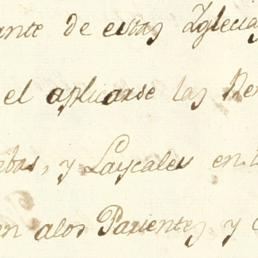 ante de estas Yglecia
el aplicarse las Re
bas, y Laycales en
en alos Parientes y